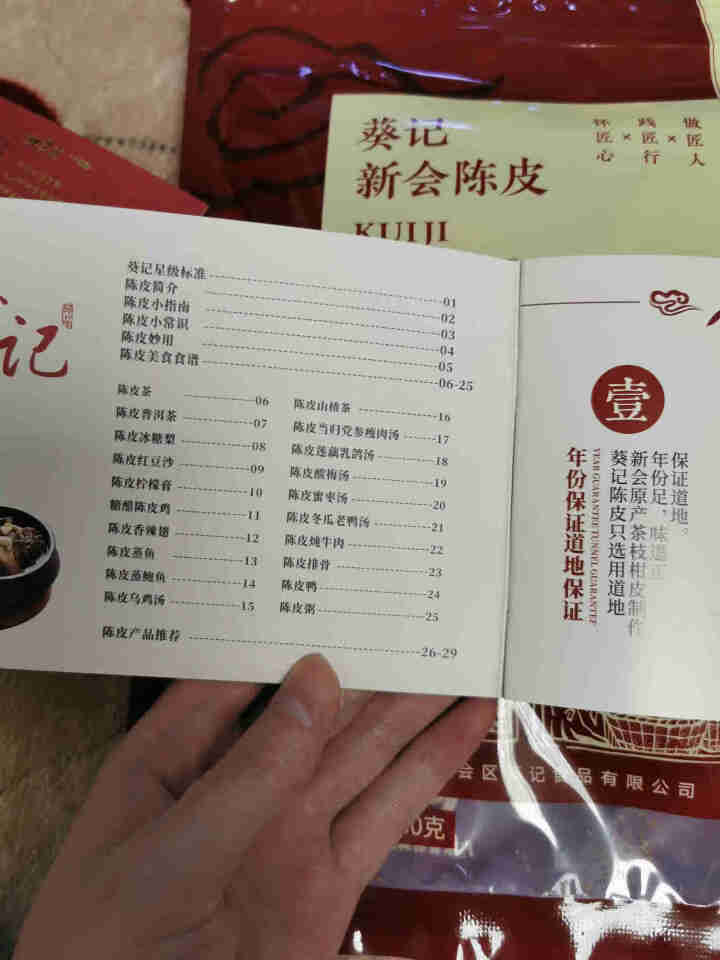 葵记
新会陈皮
KUIJI
怀匠心×践匠行×做匠人
记
葵记星级标准 01
陈皮简介 02
陈皮小指南 03
陈皮小常识 04
陈皮妙用 05
陈皮美食食谱 06-25
陈皮茶 06
陈皮普洱茶 07
陈皮冰糖梨 08
陈皮红豆沙 09
陈皮柠檬膏 10
糖醋陈皮鸡 11
陈皮香辣翅 12
陈皮蒸鱼 13
陈皮蒸鲍鱼 14
陈皮乌鸡汤 15
陈皮山楂茶 16
陈皮当归党参瘦肉汤 17
陈皮莲藕乳鸽汤 18
陈皮酸梅汤 19
陈皮蜜枣汤 20
陈皮冬瓜老鸭汤 21
陈皮炖牛肉 22
陈皮排骨 23
陈皮鸭 24
陈皮粥 25
陈皮产品推荐 26-29
壹
年份保证道地保证
YEAR GUARANTEE TUNNEL GUARANTEE
葵记陈皮只选用道地
新会原产茶枝柑皮制作
年份足，味道正
保证道地。
会区 记食品有限公司
0克